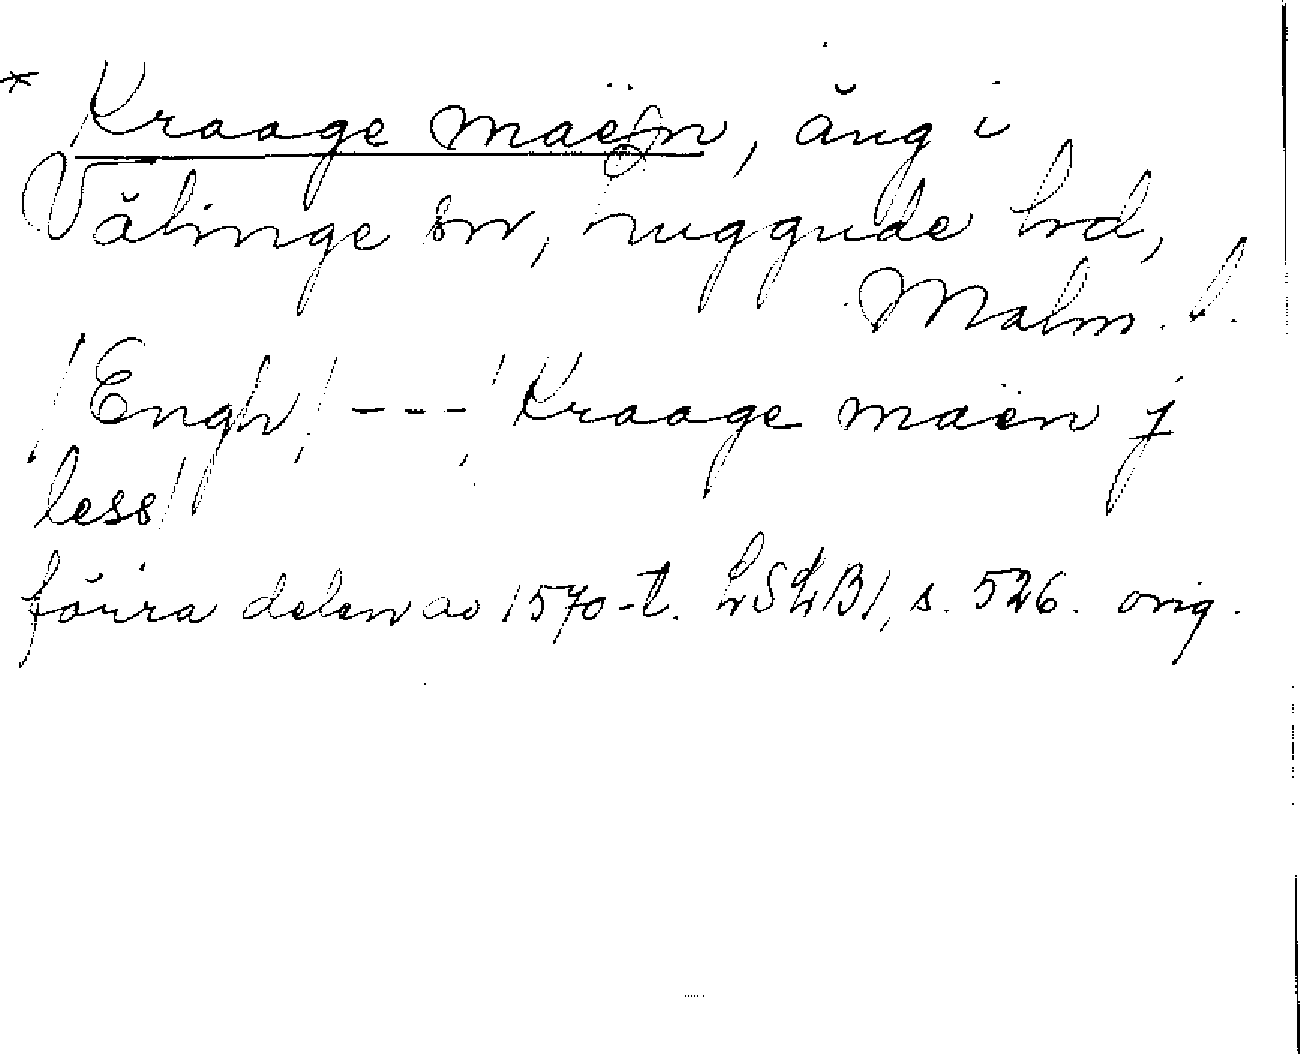 * Kraage maën, äng i
Välinge sn, Luggude hd,
Malm. l.
/Engh/ --- / Kraage maën j
less/
förra delen av 1570-t. LSLB1, s. 526. orig.